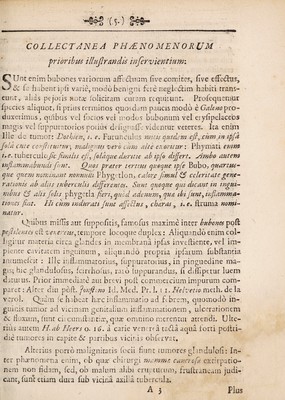 (5.)
COLLECTANEA PHÆNOMENORUM
prioribus illustrandis inservientium:
SUnt enim bubones variorum affectuum sive comites, sive effectus,
& se habent ipsi variè, modò benigni ferè neglectim habiti transeunt,
aliàs pejoris notæ solicitam curam requirunt. Prosequuntur
species aliquot, si prius terminos quosdam paucis modò è Galeno produxerimus,
quibus vel socios vel modos bubonum vel erysipelaceos
magis vel suppuratorios potiùs distinguere videntur veteres. Ita enim
Ille de tumore Dothien, i. e. Furunculus mitis quidem est, cùm in ipsâ
solâ cute constituitur, malignus verò cùm altè exoritur: Phymati enim
i.e. tuberculo sic similis est, solâque duritie ab ipso differt. Ambo autem
inflammabunda sunt. Duos præter tertius quoque ipse Bubo, quartusque
quem nominant nonnulli Phygetlon, calore simul & celeritate generationis
ab aliis tuberculis differentes. Sunt quoque qui dicant in inguinibus
& alis solis phygetla fieri, quid adenum, qua ibi sunt, inflammationes
fiat. Hi cùm indurati sunt affectus, choeras, i. e. struma nominatur.
Quibus missis aut suppositis, famosus maximè inter bubones post
pestilentes est venereus, tempore locoque duplex: Aliquandò enim colligitur
materia circa glandes in membranâ ipsas investiente, vel impeniente
cavitatem inguinum, aliquandò propria ipsarum substantia
intumescit: Ille inflammatorius, suppuratorius, in pinguedine magis;
hic glandulosus, scirrhosus, rarò suppurandus, si dissipetur luem
daturus. Prior immediatè aut brevi post commercium impurum comparet:
Alter diu post.
Med. Pr. l. 1. Nelveto meth. de la
verol. Quùm se habent hæc inflammatio ad febrem, quomodò inguinis
tumor ad vicinam genitalium inflammationem, ulcerationem
& fluxum, sunt circumstantiæ, quæ omnino merentur attendi. Ulterius
autem H. ab Heers o. 16. à carie venereâ tactâ aquâ forti postridiè
tumores in capite & partibus vicinis observat.
Alterius porrò malignitatis socii sunt tumores glandulosi: Inter
phænomena enim, ob quæ chirurgi mamma cancrosæ extirpationem
non fidam, sed, ob malum alibi erupturum, frustraneam judicant,
sunt etiam dura sub vicinâ axillâ tubercula.
A 3 Plus